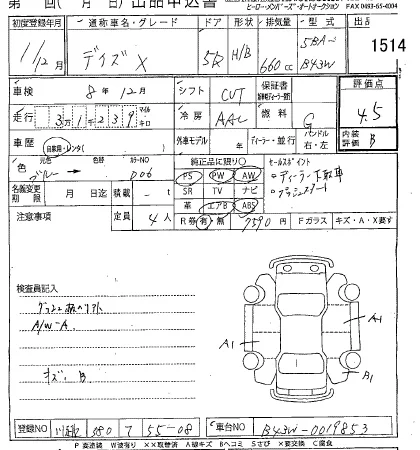 第 回( 月 日) 出品申込書
ヒーロー・メンバーズ・オートオークション FAX 0493-65-4004
初度登録年月 通称車名・グレード ドア 形状 排気量 型式 出品
1/12月 デイズ X 5R H/B 660cc 5BA-B43W 1514
車検 8年12月 シフト CVT 保証書 評価点
走行 31239 マイル・キロ 冷房 AAC 燃料 G 4.5
車歴 自家用・レンタ( ) 外車モデル 年 ディーラー・並行 ハンドル 右・左 内装評価 B
色 元色 ブルー → 色替 カラーNO 純正品に限り○ セールスポイント
PS PW AW ・ディーラー下取車
名義変更期限 月 日迄 積載 - t SR TV ナビ ・プッシュスタート
革 エアB ABS
注意事項 定員 4人 R券 有・無 7590円 Fガラス キズ・A・X要す
検査員記入
A/W-A
キズ、B
A1 A1 B1
登録NO 580 7 55-08 車台NO B43W-0019853
P 要塗装 W波有り ××取替済 A線キズ Bヘコミ Sさび ×要交換 C腐食